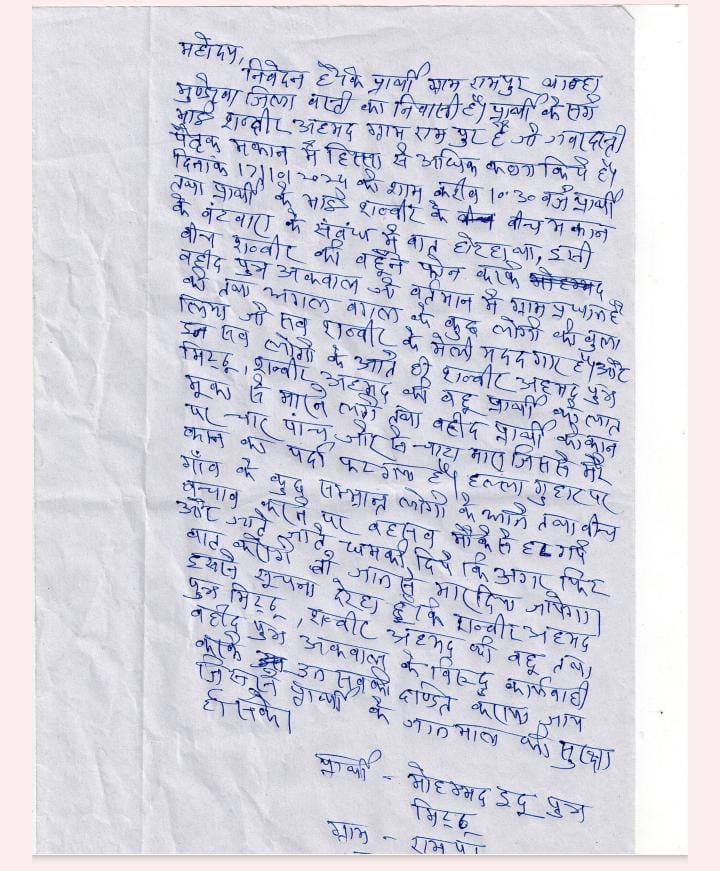 महोदय,
निवेदन है कि प्रार्थी ग्राम रामपुर थाना
मुण्डेरवा जिला बस्ती का निवासी है। प्रार्थी के सगे
भाई शब्बीर अहमद ग्राम रामपुर है जो जबरदस्ती
पैतृक मकान में हिस्सा से अधिक कब्जा किये है।
दिनांक को शाम करीब 10.30 बजे प्रार्थी
तथा प्रार्थी के भाई शब्बीर के बीच मकान
के बंटवारा के संबंध में बात हो रहा था, इसी
बीच शब्बीर की बहू ने फोन करके मोहम्मद
वहीद पुत्र अकबाल जो वर्तमान में ग्राम प्रधान है
को तथा अगल बगल के कुछ लोगों को बुला
लिया जो सब शब्बीर के मेली मददगार है। और
इन सब लोगों के आते ही शब्बीर अहमद पुत्र
मिट्ठू, शब्बीर अहमद की बहू प्रार्थी को लात
मूका से मारने लगे तथा वहीद प्रार्थी के कान
पर चार पांच जोर से चाटा मारा जिससे मेरे
कान का पर्दा फट गया है। हल्ला गुहार पर
गाँव के कुछ सम्भ्रान्त लोगों के आने तथा बीच
बचाव करने पर वह सब मौके से हट गये
और जाते जाते धमकी दिये कि अगर फिर
बात करोगे तो जान से मार दिया जायेगा।
सूचना दे रहा हूँ कि शब्बीर अहमद
पुत्र मिट्ठू, शब्बीर अहमद की बहू तथा
वहीद पुत्र अकबाल के विरुद्ध कार्यवाही
करके उन सबको दण्डित कराया जाय
जिससे प्रार्थी के जानमाल की सुरक्षा
हो सके।
प्रार्थी - मोहम्मद इदू पुत्र
मिट्ठू
ग्राम -